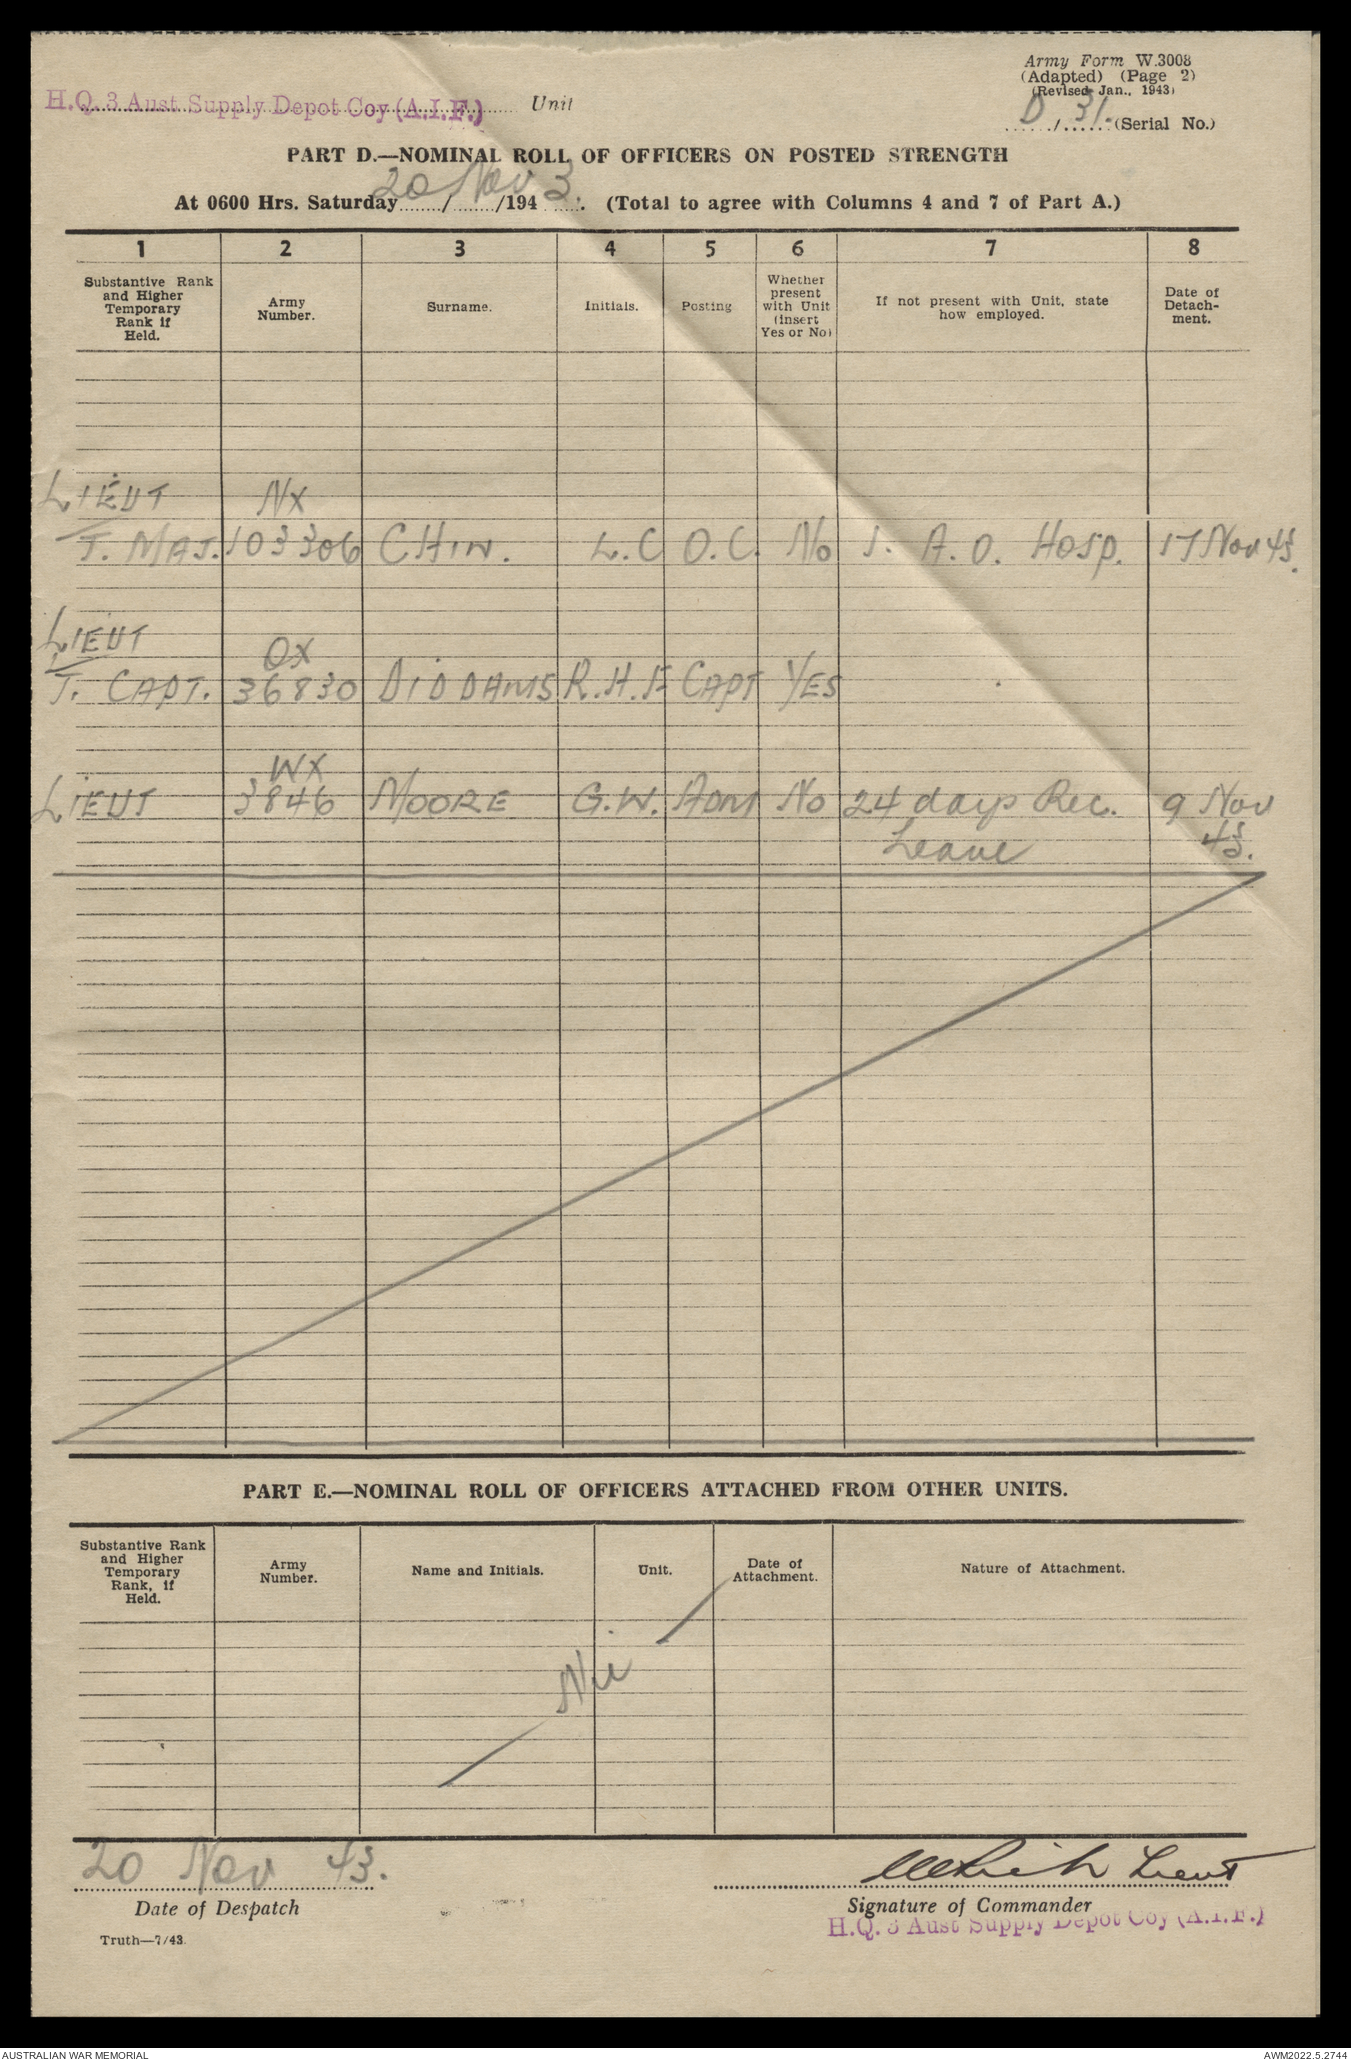 Army Form W.3008
(Adapted) (Page 2)
(Revised Jan., 1943)
H.Q. 3 Aust Supply Depot Coy (A.I.F.) Unit
D / 31. (Serial No.)
PART D.—NOMINAL ROLL OF OFFICERS ON POSTED STRENGTH
At 0600 Hrs. Saturday 20 / Nov /194 3. (Total to agree with Columns 4 and 7 of Part A.)
1 2 3 4 5 6 7 8
Substantive Rank and Higher Temporary Rank if Held. Army Number. Surname. Initials. Posting Whether present with Unit (insert Yes or No) If not present with Unit, state how employed. Date of Detach-ment.
LIEUT NX
T. MAJ. 103306 CHIN. L.C O.C. No A. D. Hosp. 17 Nov 43.
LIEUT OX
T. CAPT. 36830 DIDDAMS R.H.F CAPT YES
WX
LIEUT 3846 MOORE G.W. ADM No 24 days Rec. 9 Nov
Leave 43.
PART E.—NOMINAL ROLL OF OFFICERS ATTACHED FROM OTHER UNITS.
Substantive Rank and Higher Temporary Rank, if Held. Army Number. Name and Initials. Unit. Date of Attachment. Nature of Attachment.
Nil
20 Nov 43. Lieut
Date of Despatch Signature of Commander
H.Q. 3 Aust Supply Depot Coy (A.I.F.)
Truth—7/43.
AUSTRALIAN WAR MEMORIAL AWM2022.5.2744